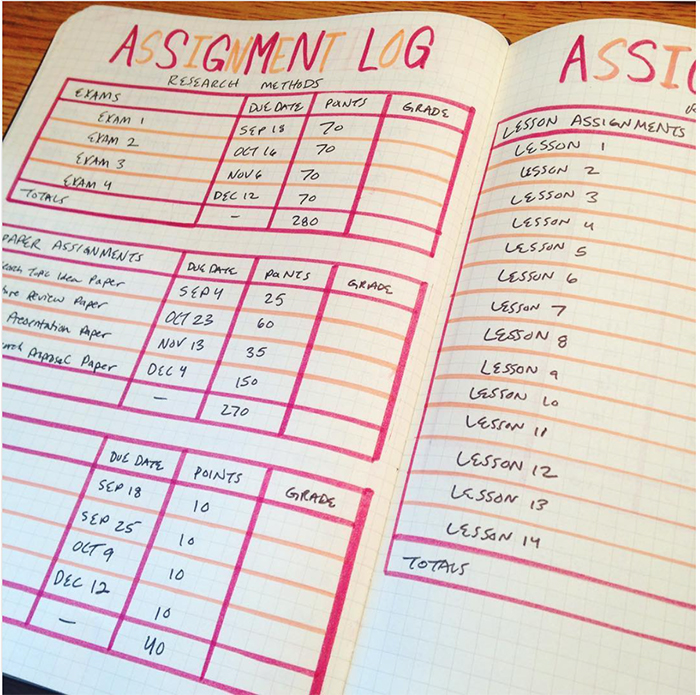 ASSIGNMENT LOG
RESEARCH METHODS
EXAMS DUE DATE POINTS GRADE
EXAM 1 SEP 18 70
EXAM 2 OCT 16 70
EXAM 3 NOV 6 70
EXAM 4 DEC 12 70
TOTALS - 280
PAPER ASSIGNMENTS DUE DATE POINTS GRADE
Topic Idea Paper SEP 4 25
Review Paper OCT 23 60
Presentation Paper NOV 13 35
Proposal Paper DEC 4 150
- 270
DUE DATE POINTS GRADE
SEP 18 10
SEP 25 10
OCT 9 10
DEC 12 10
- 40
ASSIG
LESSON ASSIGNMENTS
LESSON 1
LESSON 2
LESSON 3
LESSON 4
LESSON 5
LESSON 6
LESSON 7
LESSON 8
LESSON 9
LESSON 10
LESSON 11
LESSON 12
LESSON 13
LESSON 14
TOTALS